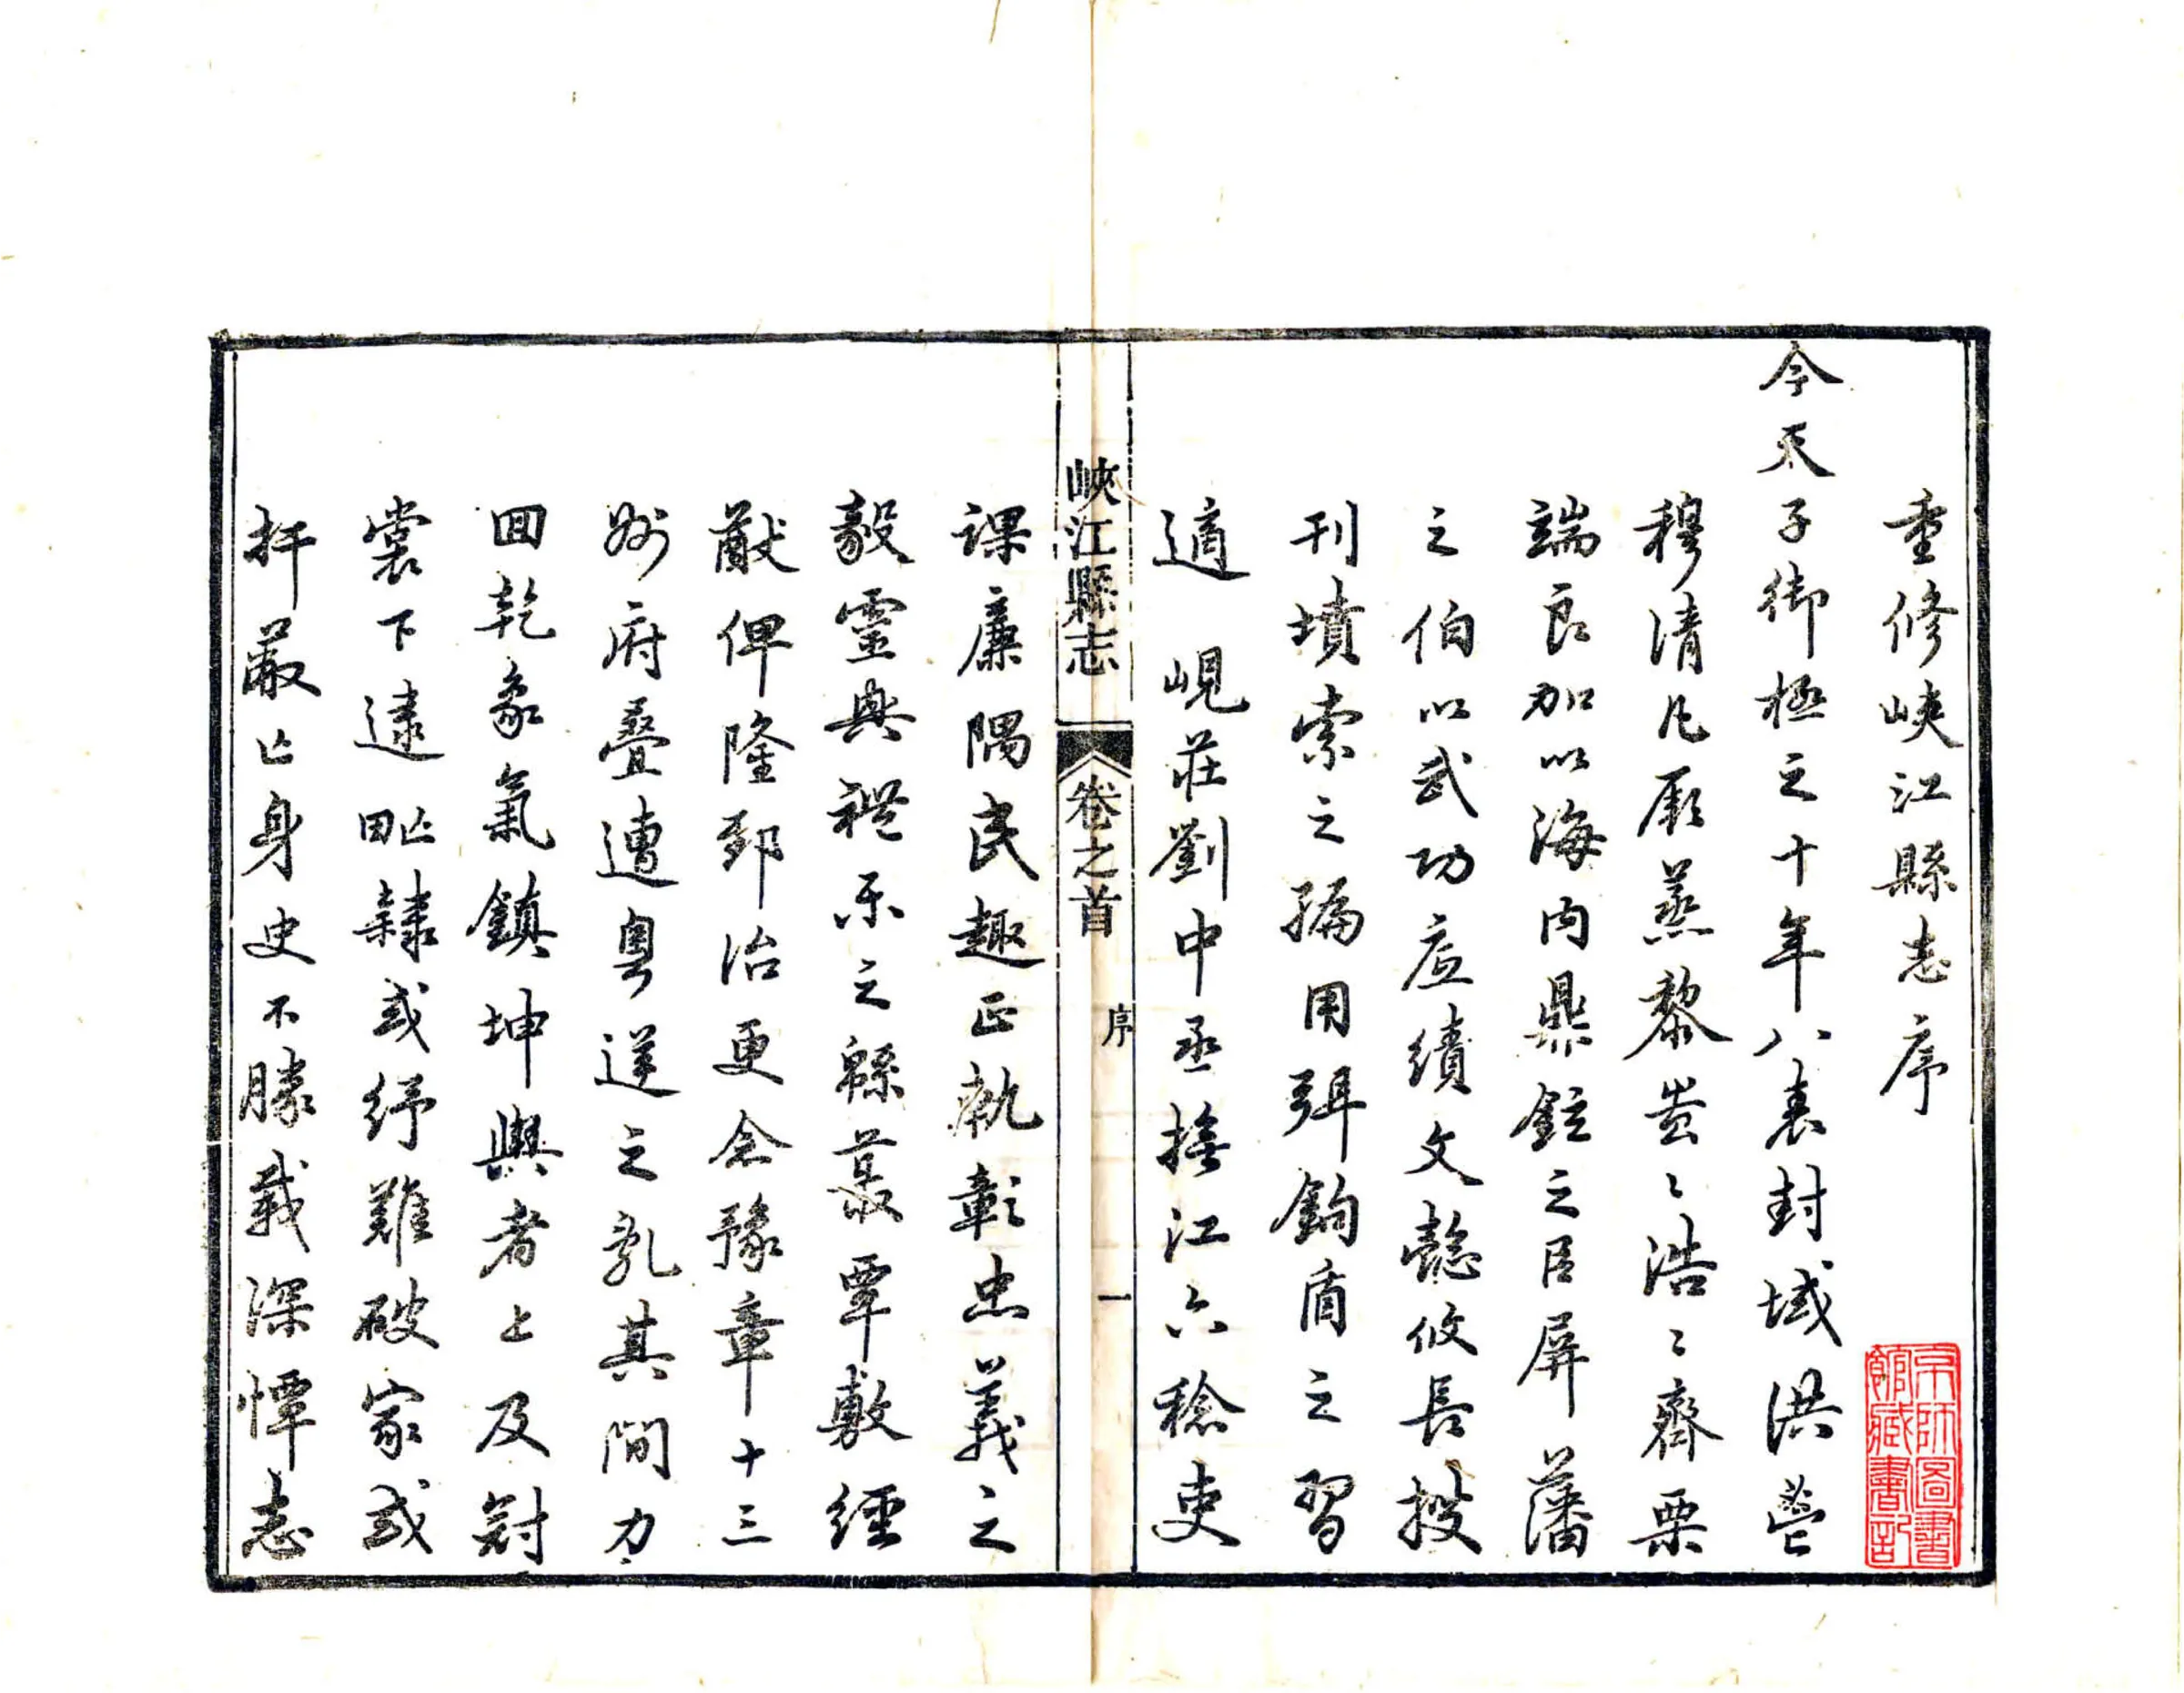 重修峽江縣志序
今天子御極之十年八表封域洪謐
穆清凡厥蒸黎蚩〻浩〻齊栗
端良加以海內鼎鉉之臣屏藩
之伯以武功底績文懿攸長投
刊墳索之編用弭鉤盾之習
適 峴莊劉中丞撫江六稔吏
課廉隅民趣正執彰忠義之
毅靈與禮樂之緜蕞覃敷經
猷俾隆郅治更念豫章十三
州府疊遭粵逆之亂其間力
回乾象氣鎮坤輿者上及冠
裳下逮甿隸或紓難破家或
扞敵亡身史不勝載深憚志
峽江縣志 卷之首 序 一
京師圖書
館藏書記